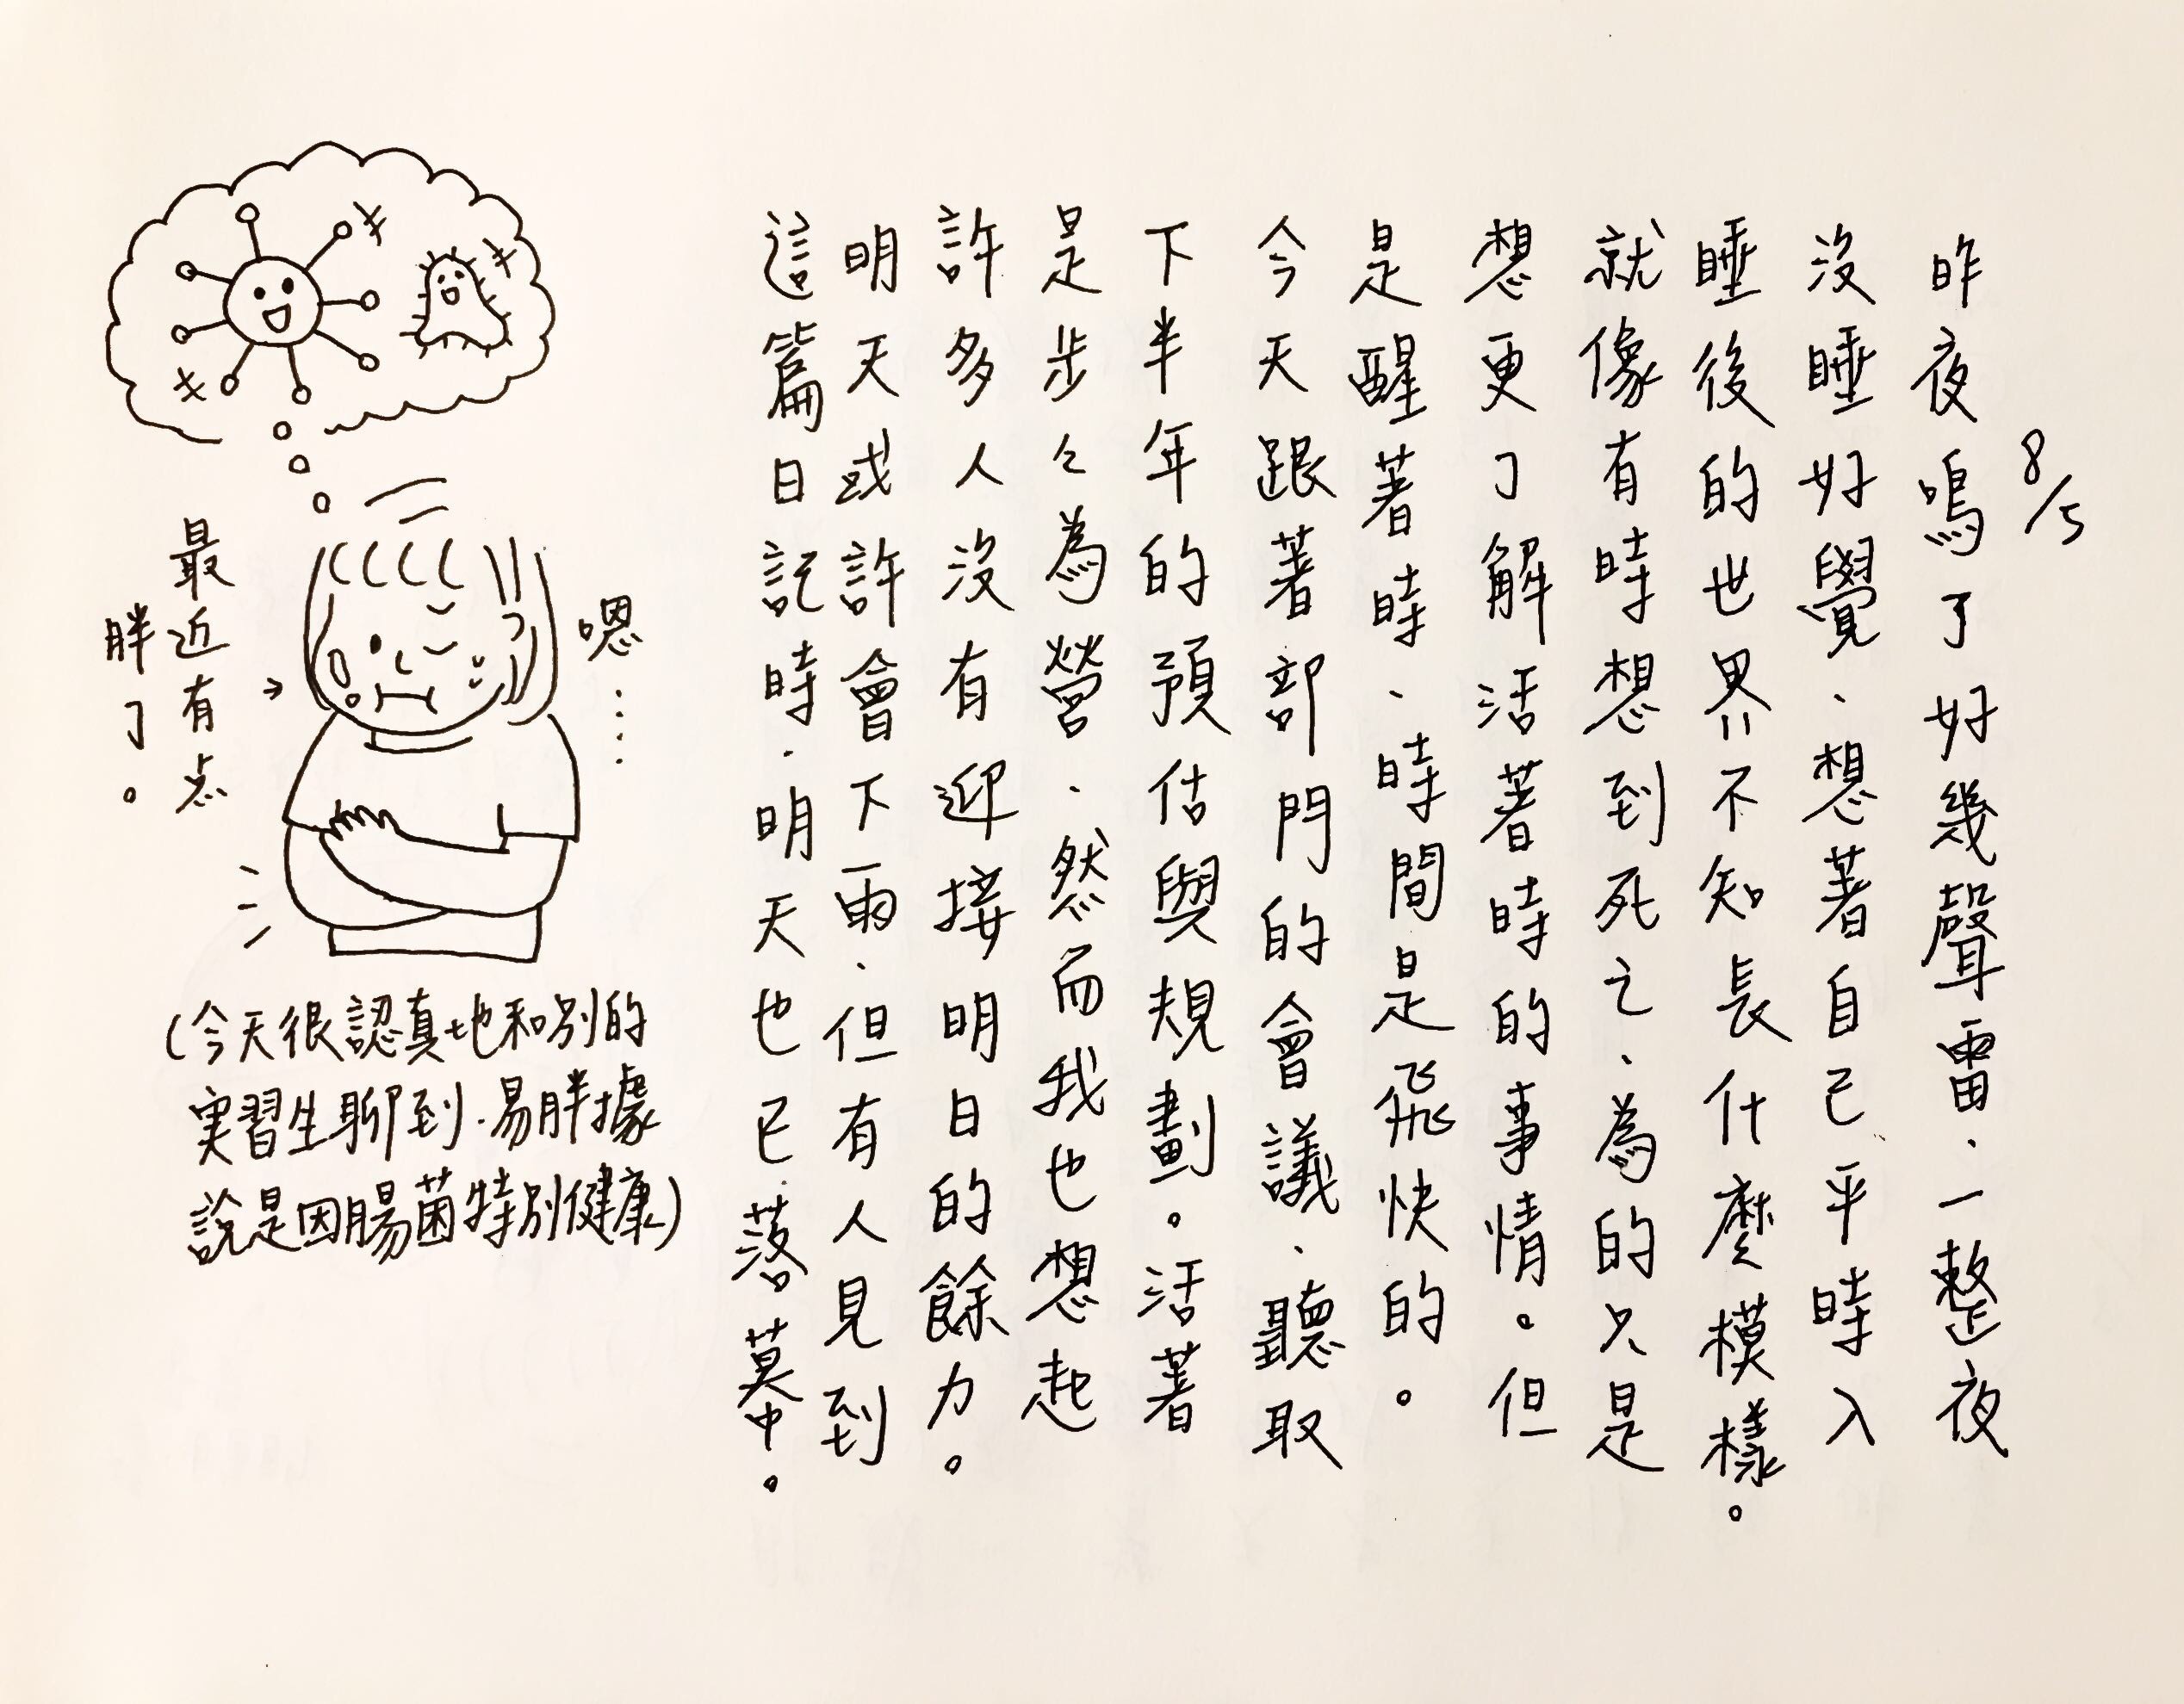 8/5
昨夜鳴了好幾聲雷、一整夜
沒睡好覺、想著自己平時入
睡後的世界不知長什麼模樣。
就像有時想到死亡、為的只是
想更了解活著時的事情。但
是醒著時、時間是飛快的。
今天跟著部門的會議、聽取
下半年的預估與規劃。活著
是步々為營、然而我也想起
許多人沒有迎接明日的餘力。
明天或許會下雨、但有人見到
這篇日記時、明天也已落幕。
嗯……
最近有点
胖了。
(今天很認真地和別的
実習生聊到、易胖據
說是因腸菌特別健康)